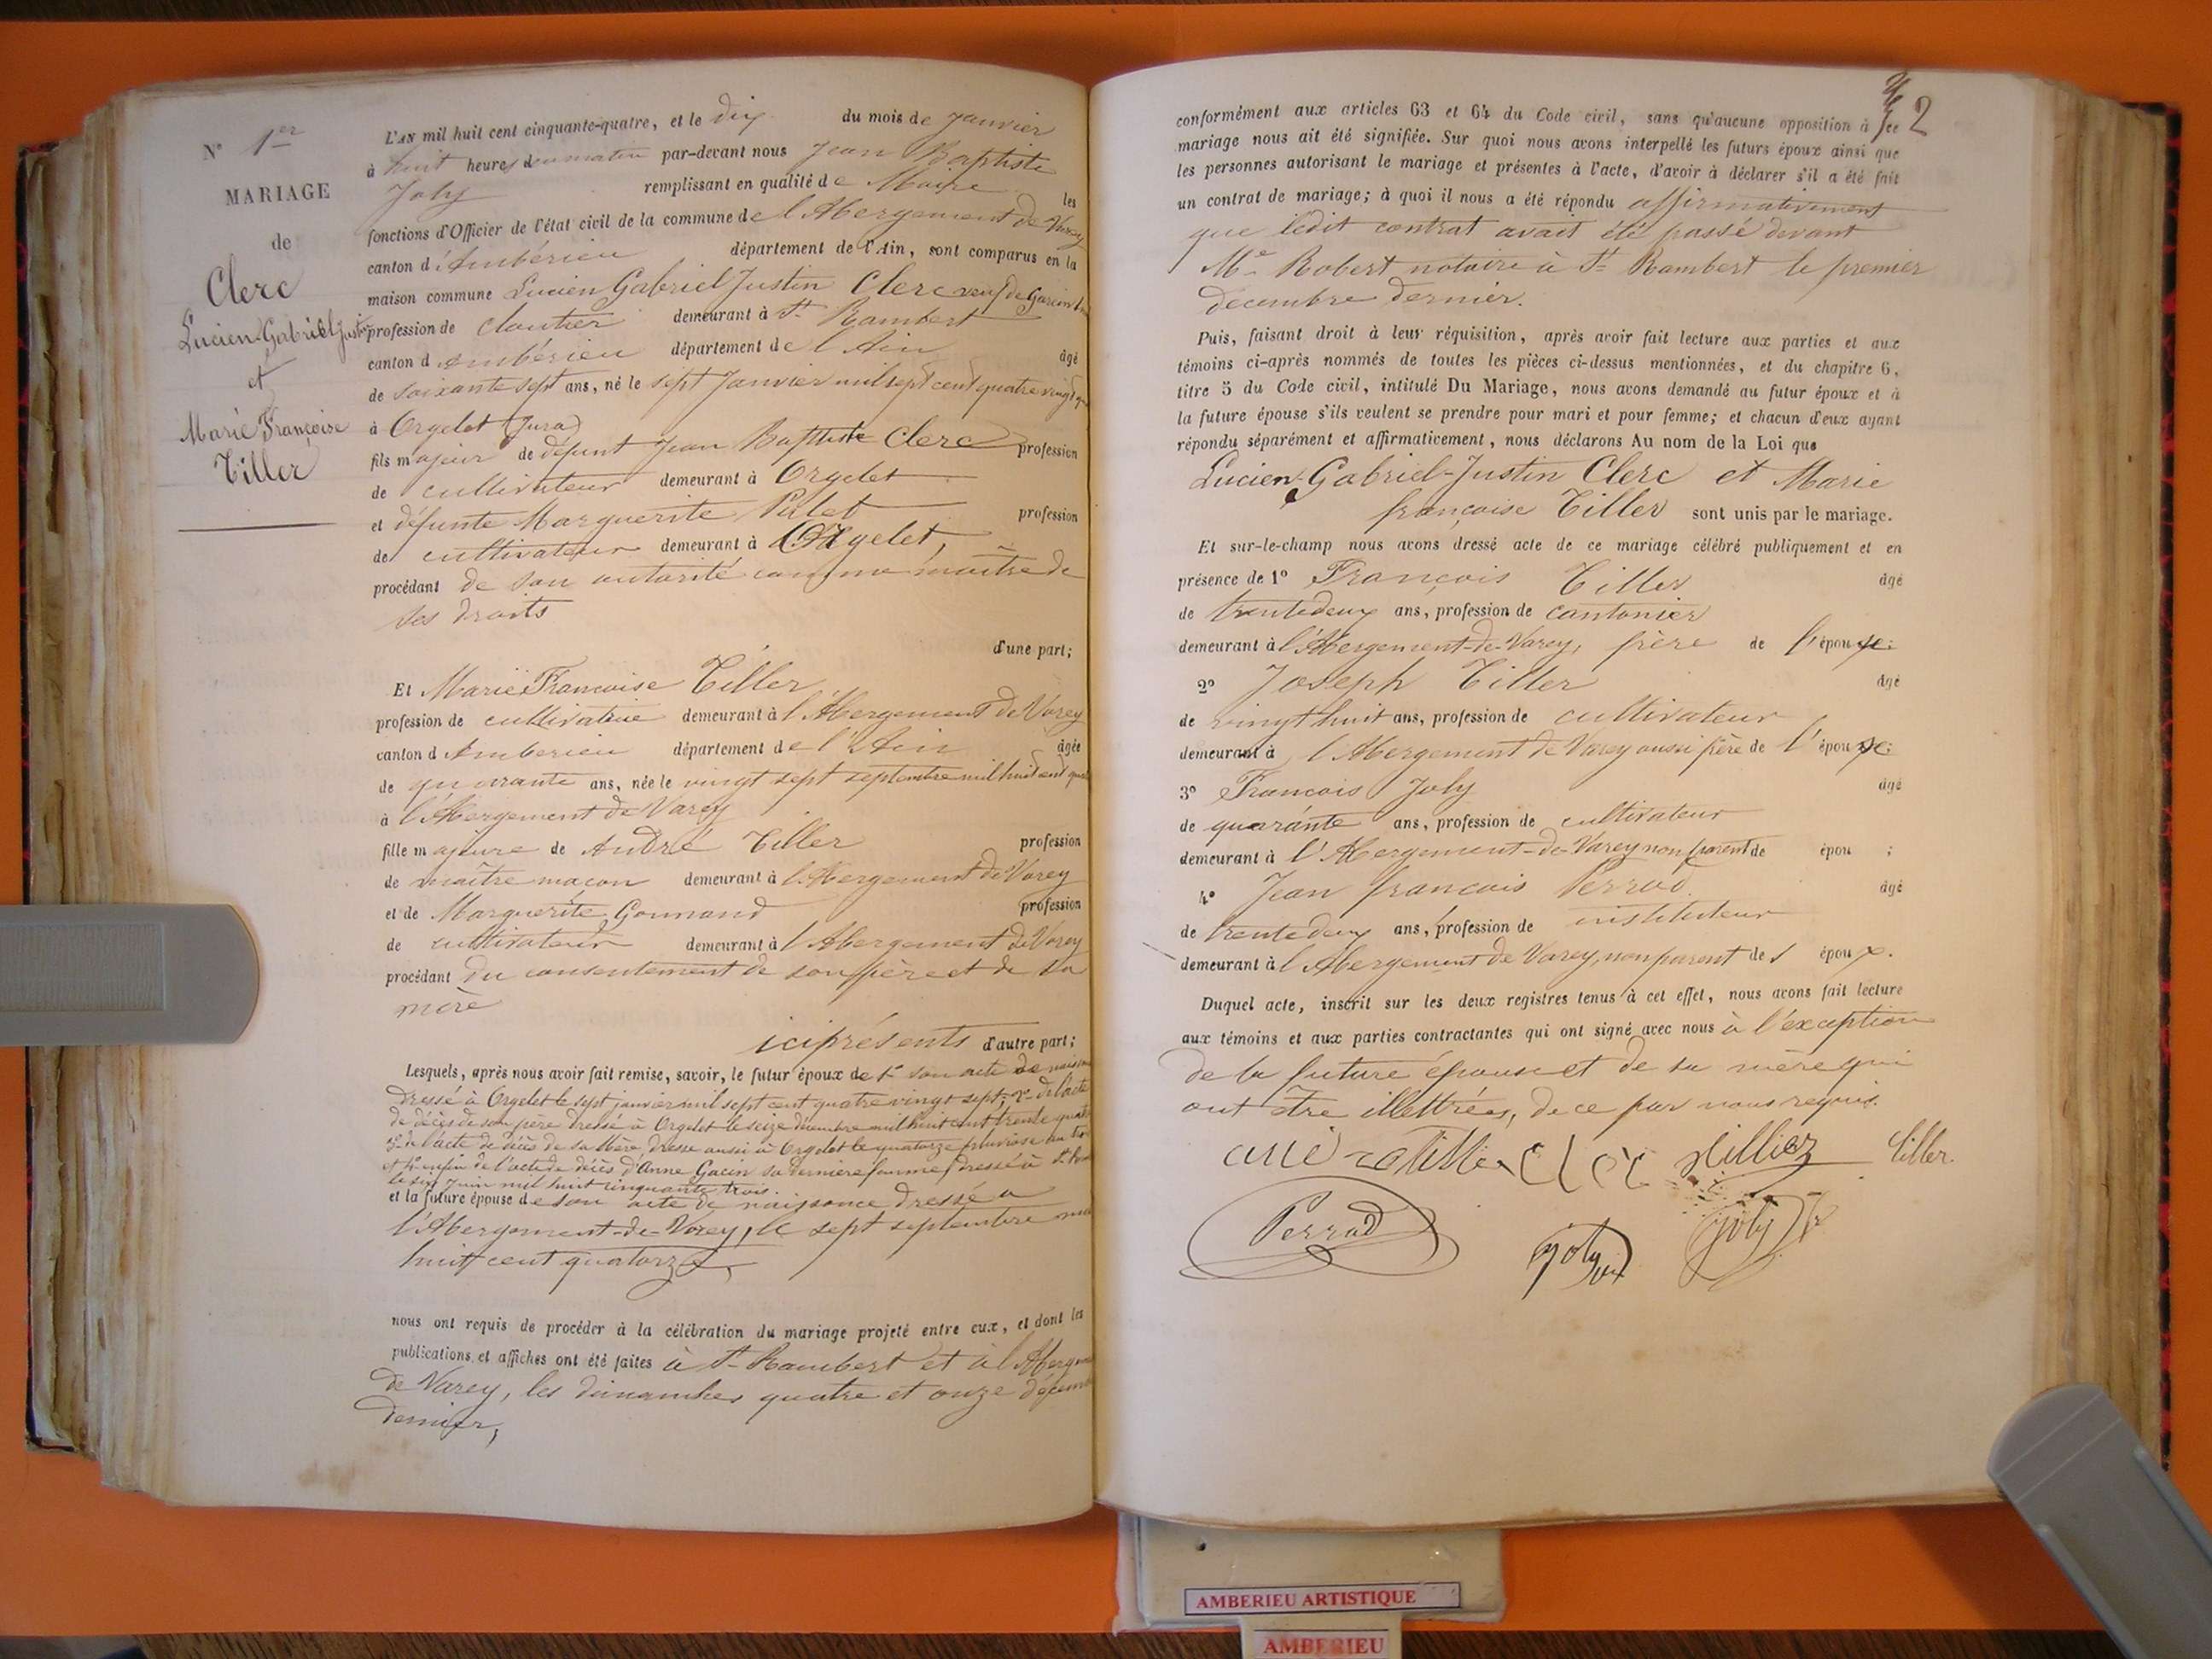 N° 1er
MARIAGE
de
Clerc
Lucien-Gabriel Justin
et
Marie Françoise
Tiller
L'AN mil huit cent cinquante-quatre, et le dix du mois de janvier
à huit heures du matin par-devant nous Jean Baptiste
Joly remplissant en qualité de Maire les
fonctions d'Officier de l'état civil de la commune de l'Abergement de Varey
canton d'Ambérieu département de l'Ain, sont comparus en la
maison commune Lucien Gabriel Justin Clerc veuf de
profession de cloutier demeurant à St Rambert
canton d Ambérieu département de l'Ain âgé
de soixante sept ans, né le sept janvier mil sept cent quatre vingt
à Orgelet (Jura)
fils majeur de défunt Jean Baptiste Clerc profession
de cultivateur demeurant à Orgelet
et défunte Marguerite profession
de cultivateur demeurant à Orgelet,
procédant de son autorité comme maître de
ses droits
d'une part;
Et Marie Françoise Tiller
profession de cultivatrice demeurant à l'Abergement de Varey
canton d Amberieu département de l'Ain âgée
de quarante ans, née le vingt sept septembre mil huit cent
à l'Abergement de Varey
fille majeure de André Tiller profession
de maître maçon demeurant à l'Abergement de Varey
et de Marguerite Gonnand profession
de cultivateur demeurant à l'Abergement de Varey
procédant du consentement de son père et de sa
mère
ici présents d'autre part;
Lesquels, après nous avoir fait remise, savoir, le futur époux de 1° son acte de naissance
dressé à Orgelet le sept janvier mil sept cent quatre vingt sept; 2° de l'acte
de décès de son père dressé à Orgelet le seize décembre mil huit cent trente
3° de l'acte de décès de sa mère dressé aussi à Orgelet le quatorze pluviôse an
et 4° enfin de l'acte de décès d'Anne Gacin sa dernière femme dressé à St
le six juin mil huit cinquante trois.
et la future épouse de son acte de naissance dressé à
l'Abergement-de-Varey, le sept septembre mil
huit cent quatorze,
nous ont requis de procéder à la célébration du mariage projeté entre eux, et dont les
publications et affiches ont été faites à St Rambert et à l'Abergement
de Varey, les dimanches quatre et onze décembre
dernier,
2
conformément aux articles 63 et 64 du Code civil, sans qu'aucune opposition à ce
mariage nous ait été signifiée. Sur quoi nous avons interpellé les futurs époux ainsi que
les personnes autorisant le mariage et présentes à l'acte, d'avoir à déclarer s'il a été fait
un contrat de mariage; à quoi il nous a été répondu affirmativement
que ledit contrat avait été passé devant
Me Robert notaire à St Rambert le premier
decembre dernier.
Puis, faisant droit à leur réquisition, après avoir fait lecture aux parties et aux
témoins ci-après nommés de toutes les pièces ci-dessus mentionnées, et du chapitre 6,
titre 5 du Code civil, intitulé Du Mariage, nous avons demandé au futur époux et à
la future épouse s'ils veulent se prendre pour mari et pour femme; et chacun d'eux ayant
répondu séparément et affirmativement, nous déclarons Au nom de la Loi que
Lucien-Gabriel-Justin Clerc et Marie
françoise Tiller sont unis par le mariage.
Et sur-le-champ nous avons dressé acte de ce mariage célébré publiquement et en
présence de 1° François Tiller âgé
de trentedeux ans, profession de cantonier
demeurant à l'Abergement-de-Varey, frère de l'épouse;
2° Joseph Tiller âgé
de vingt huit ans, profession de cultivateur
demeurant à l'Abergement de Varey aussi frère de l'épouse;
3° Francois Joly âgé
de quarante ans, profession de cultivateur
demeurant à l'Abergement-de-Varey non parent de épou ;
4° Jean francois Perrod âgé
de trentedeux ans, profession de instituteur
demeurant à l'Abergement de Varey, non parent des époux.
Duquel acte, inscrit sur les deux registres tenus à cet effet, nous avons fait lecture
aux témoins et aux parties contractantes qui ont signé avec nous à l'exception
de la future épouse et de sa mère qui
ont être illettrées, de ce par nous requis.
Tiller.
Perrod
Joly
Joly
AMBERIEU ARTISTIQUE
AMBERIEU